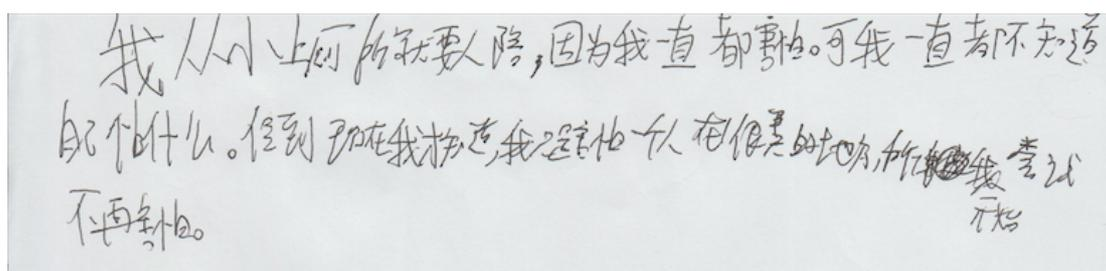 我从小上厕所就要人陪,因为我一直都害怕。可我一直都不知道
自己怕什么。但到现在我才知道,我是害怕一个人在很黑的地方,所以我尝试
开始
不再害怕。